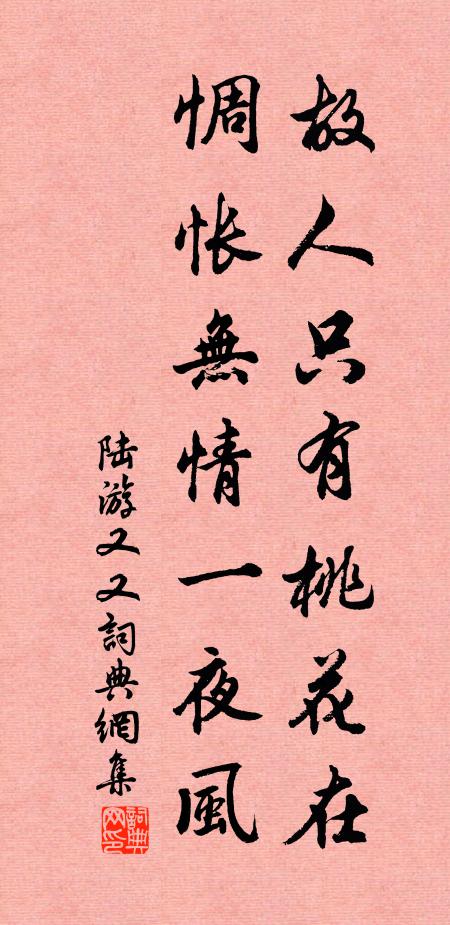 故人只有桃花在
惆怅無情一夜風
陆游又又詞典網集
詞典
网印